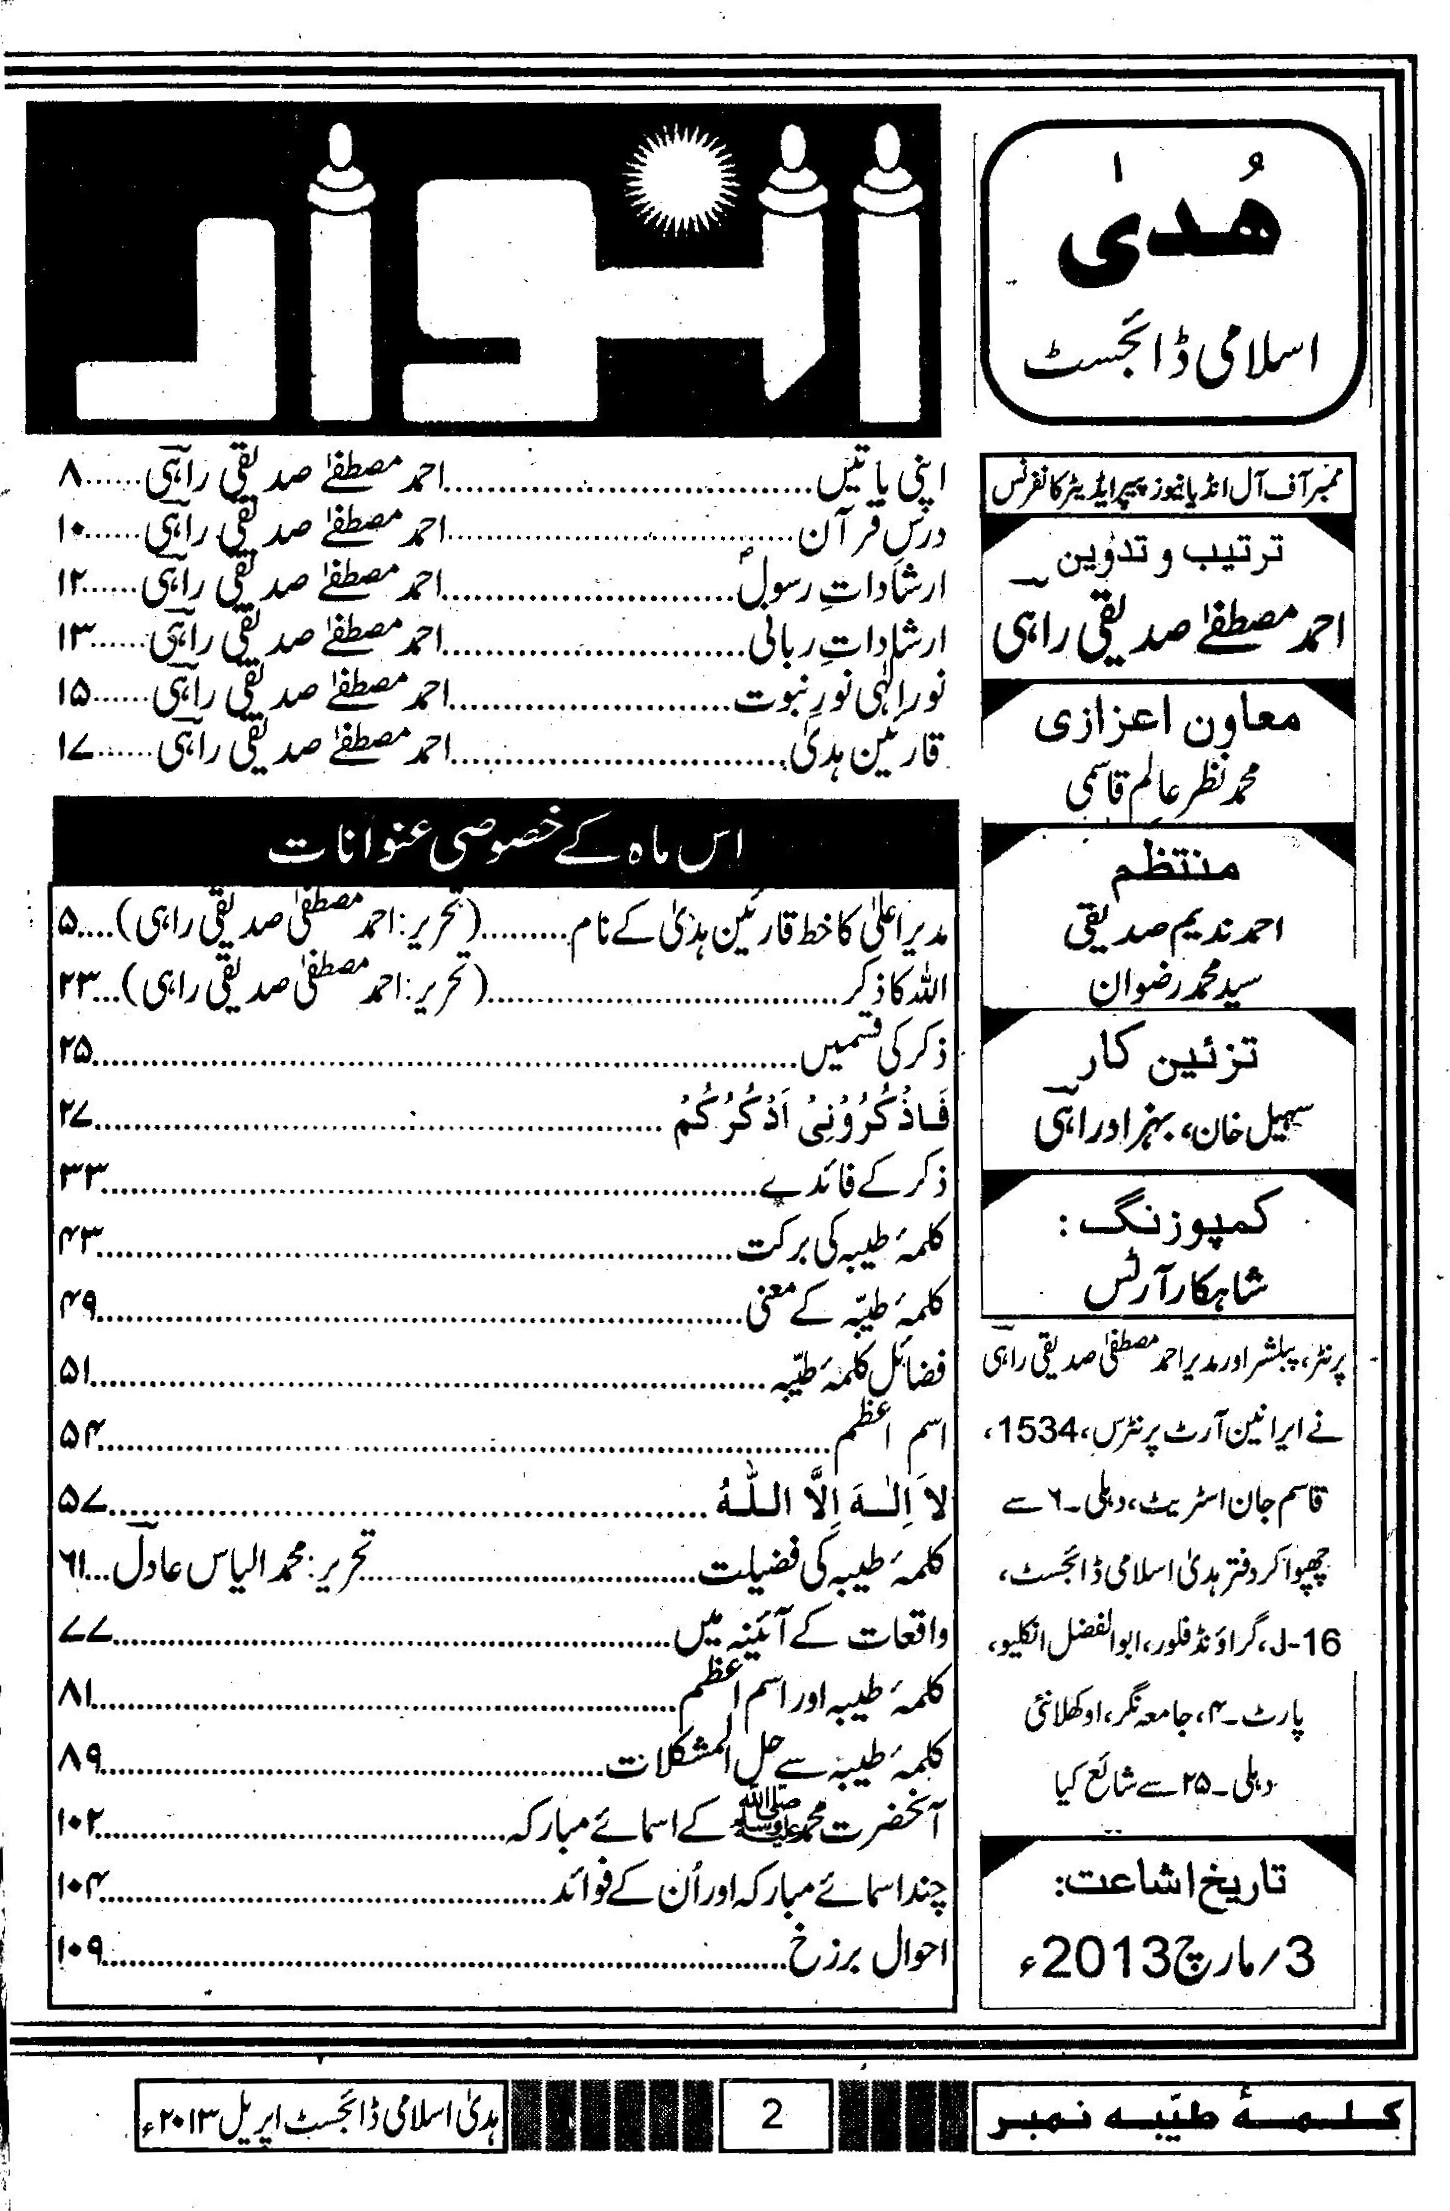 ہُدیٰ
اسلامی ڈائجسٹ
ممبر آف آل انڈیا نیوز پیپر ایڈیٹر کانفرنس
ترتیب و تدوین
احمد مصطفےٰ صدیقی راہی
معاون اعزازی
محمد نظر عالم قاسمی
منتظم
احمد ندیم صدیقی
سید محمد رضوان
تزئین کار
سہیل خان، بہزاد راہی
کمپوزنگ :
شاہکار آرٹس
پرنٹر، پبلشر اور مدیر احمد مصطفیٰ صدیقی راہی
نے ایرانین آرٹ پرنٹرس، 1534،
قاسم جان اسٹریٹ، دہلی۔۶ سے
چھپوا کر دفتر ہدیٰ اسلامی ڈائجسٹ،
J-16، گراؤنڈ فلور، ابوالفضل انکلیو،
پارٹ۔۴، جامعہ نگر، اوکھلا نئی
دہلی۔۲۵ سے شائع کیا
تاریخ اشاعت:
3؍مارچ 2013ء
انوار
اپنی باتیں..............................احمد مصطفےٰ صدیقی راہی......۸
درسِ قرآن..............................احمد مصطفےٰ صدیقی راہی......۱۰
ارشاداتِ رسولؐ..............................احمد مصطفےٰ صدیقی راہی......۱۲
ارشاداتِ ربانی..............................احمد مصطفےٰ صدیقی راہی......۱۳
نورِ الٰہی نورِ نبوت..............................احمد مصطفےٰ صدیقی راہی......۱۵
قارئین ہدیٰ..............................احمد مصطفےٰ صدیقی راہی......۱۷
اس ماہ کے خصوصی عنوانات
مدیر اعلیٰ کا خط قارئین ہدیٰ کے نام.........(تحریر: احمد مصطفیٰ صدیقی راہی)....۵
اللہ کا ذکر..............................(تحریر: احمد مصطفیٰ صدیقی راہی)...۲۳
ذکر کی قسمیں..............................۲۵
فَاذْكُرُوْنِىْ اَذْكُرْكُمْ..............................۲۷
ذکر کے فائدے..............................۳۳
کلمۂ طیبہ کی برکت..............................۴۳
کلمۂ طیّبہ کے معنی..............................۴۹
فضائل کلمۂ طیّبہ..............................۵۱
اسم اعظم..............................۵۴
لاَ اِلٰـهَ اِلَّا اللّٰهُ..............................۵۷
کلمۂ طیبہ کی فضیلت..............................تحریر: محمد الیاس عادل...۶۱
واقعات کے آئینہ میں..............................۷۷
کلمۂ طیبہ اور اسم اعظم..............................۸۱
کلمۂ طیبہ سے حل المشکلات..............................۸۹
آنحضرت محمد ﷺ کے اسمائے مبارکہ..............................۱۰۲
چند اسمائے مبارکہ اور اُن کے فوائد..............................۱۰۴
احوال برزخ..............................۱۰۹
کلمۂ طیّبہ نمبر
2
ہدیٰ اسلامی ڈائجسٹ اپریل ۲۰۱۳ء